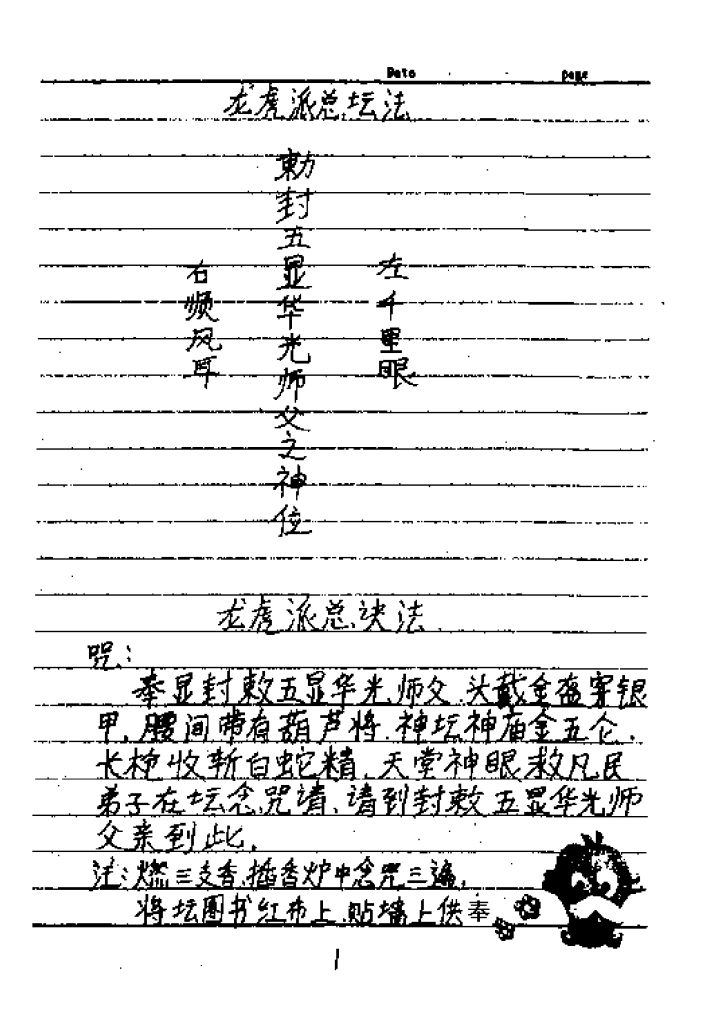 Date page
龙虎派总坛法
敕封五显华光师父之神位
左千里眼
右顺风耳
龙虎派总诀法
咒:
奉显封敕五显华光师父.头戴金盔穿银
甲,腰间带有葫芦将.神坛神庙金五仑.
长枪收斩白蛇精.天堂神眼救凡民
弟子在坛念咒请.请到封敕五显华光师
父亲到此.
注:燃三支香,插香炉中念咒三遍,
将坛图书红布上.贴墙上供奉
1